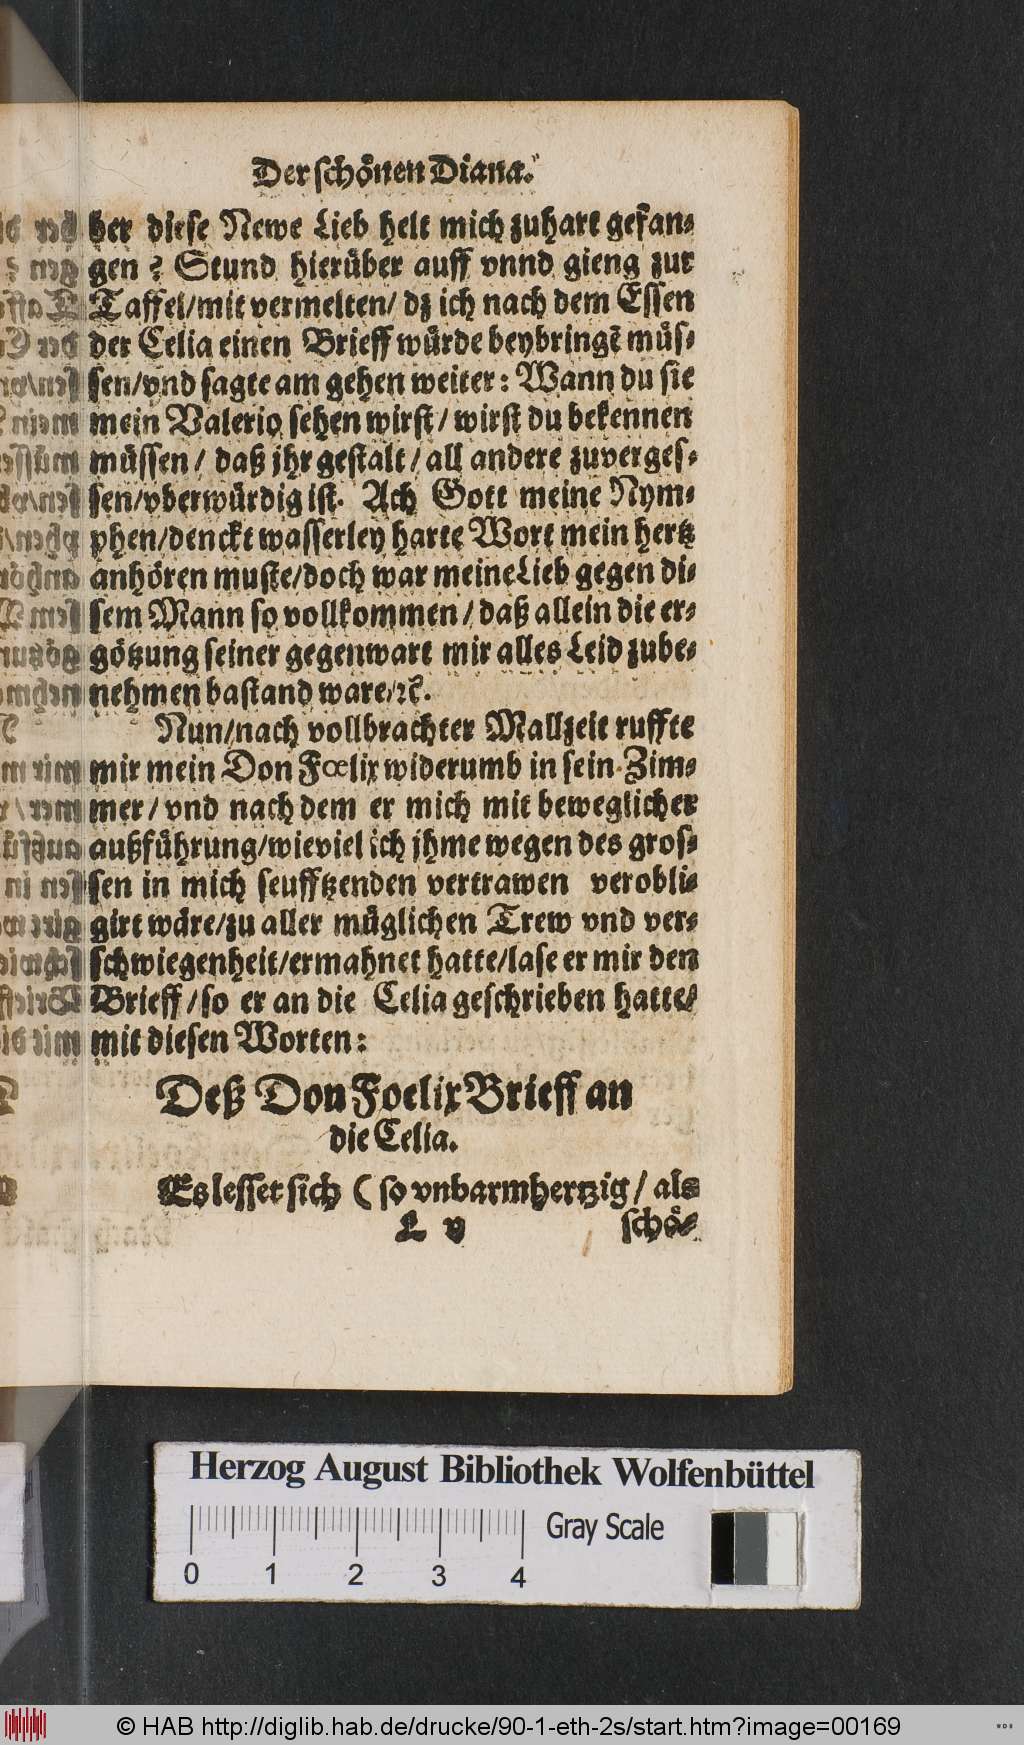 Der schönen Diana.
ber diese Newe Lieb helt mich zuhart gefan-
gen? Stund hierüber auff vnnd gieng zur
Taffel/mit vermelten/ dz ich nach dem Essen
der Celia einen Brieff würde beybringẽ müs-
sen/vnd sagte am gehen weiter: Wann du sie
mein Valerio sehen wirst/ wirst du bekennen
müssen/ daß jhr gestalt/ all andere zuverges-
sen/vberwürdig ist. Ach Gott meine Nym-
phen/denckt wasserley harte Wort mein hertz
anhören muste/doch war meine Lieb gegen di-
sem Mann so vollkommen/ daß allein die er-
götzung seiner gegenwart mir alles Leid zube-
nehmen bastand ware/ꝛc.
Nun/nach vollbrachter Mallzeit ruffte
mir mein Don Fœlix widerumb in sein Zim-
mer/ vnd nach dem er mich mit beweglicher
außführung/wieviel ich jhme wegen des gros-
sen in mich seufftzenden vertrawen verobli-
girt wåre/zu aller müglichen Trew vnd ver-
schwiegenheit/ermahnet hatte/lase er mir den
Brieff/so er an die Celia geschrieben hatte/
mit diesen Worten:
Deß Don Foelix Brieff an
die Celia.
Es lesset sich (so vnbarmhertzig/ als
L v schö-
Herzog August Bibliothek Wolfenbüttel
0 1 2 3 4 Gray Scale
© HAB http://diglib.hab.de/drucke/90-1-eth-2s/start.htm?image=00169